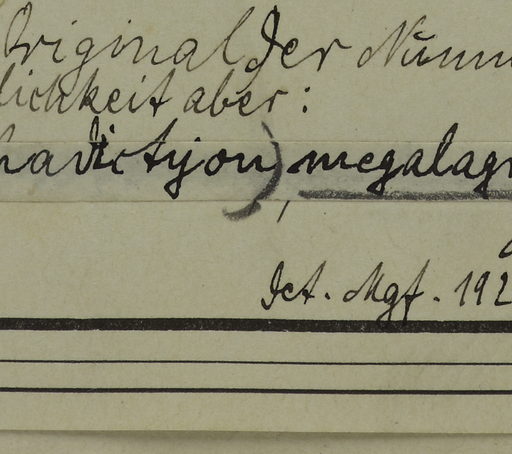 Original der Numm
lichkeit aber:
hadictyon), megalagr
Det. Mgf. 192